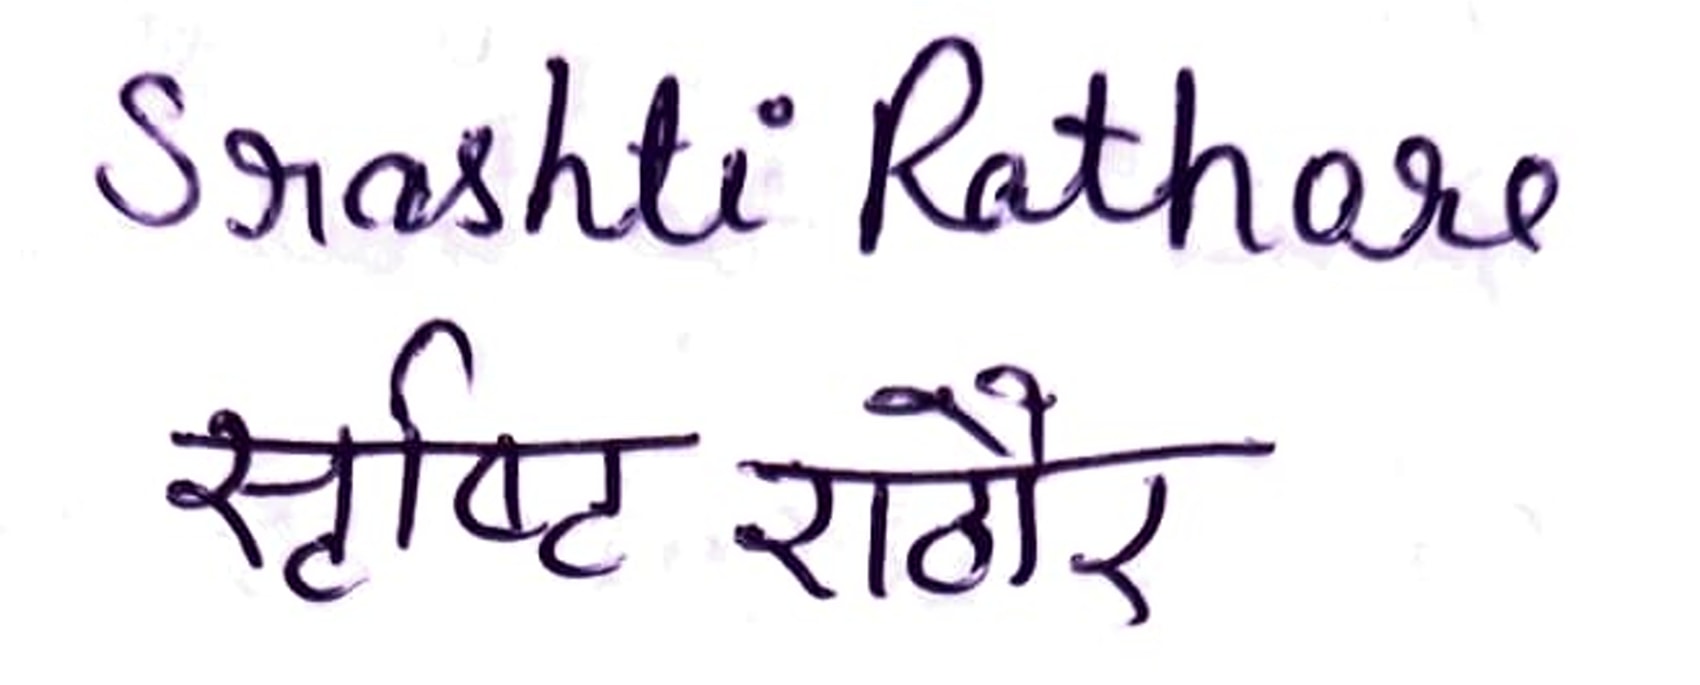 Srashti Rathore
सृष्टि राठौर